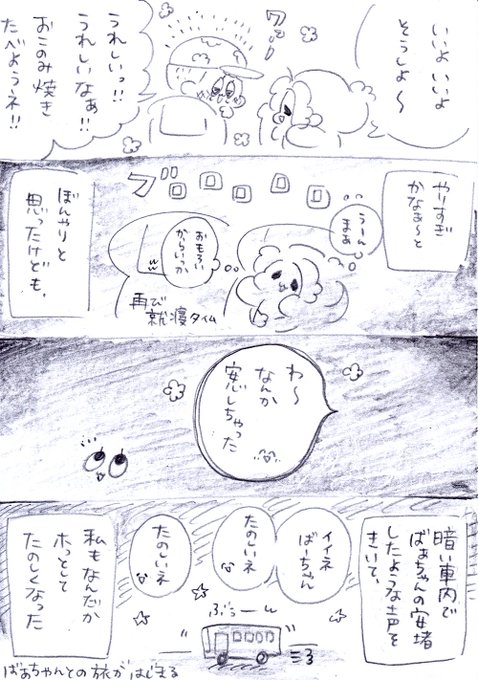 いいよ いいよ
そうしよ〜
ワッ
うれしいっ!!
うれしいなぁ!!
おこのみ焼き
たべようネ!!
やりすぎ
かなぁ〜と
うーん
まぁ
ブロロロロロ
おもろい
からいっか
再び
就寝タイム
ぼんやりと
思ったけども、
わ〜
なんか
安心しちゃった
暗い車内で
ばぁちゃんの安堵
したような声を
きいて、
イイネ
ばーちゃん
たのしいネ
たのしいネ
ぶぅーん
私もなんだか
ホッとして
たのしくなった
ばぁちゃんとの旅がはじまる